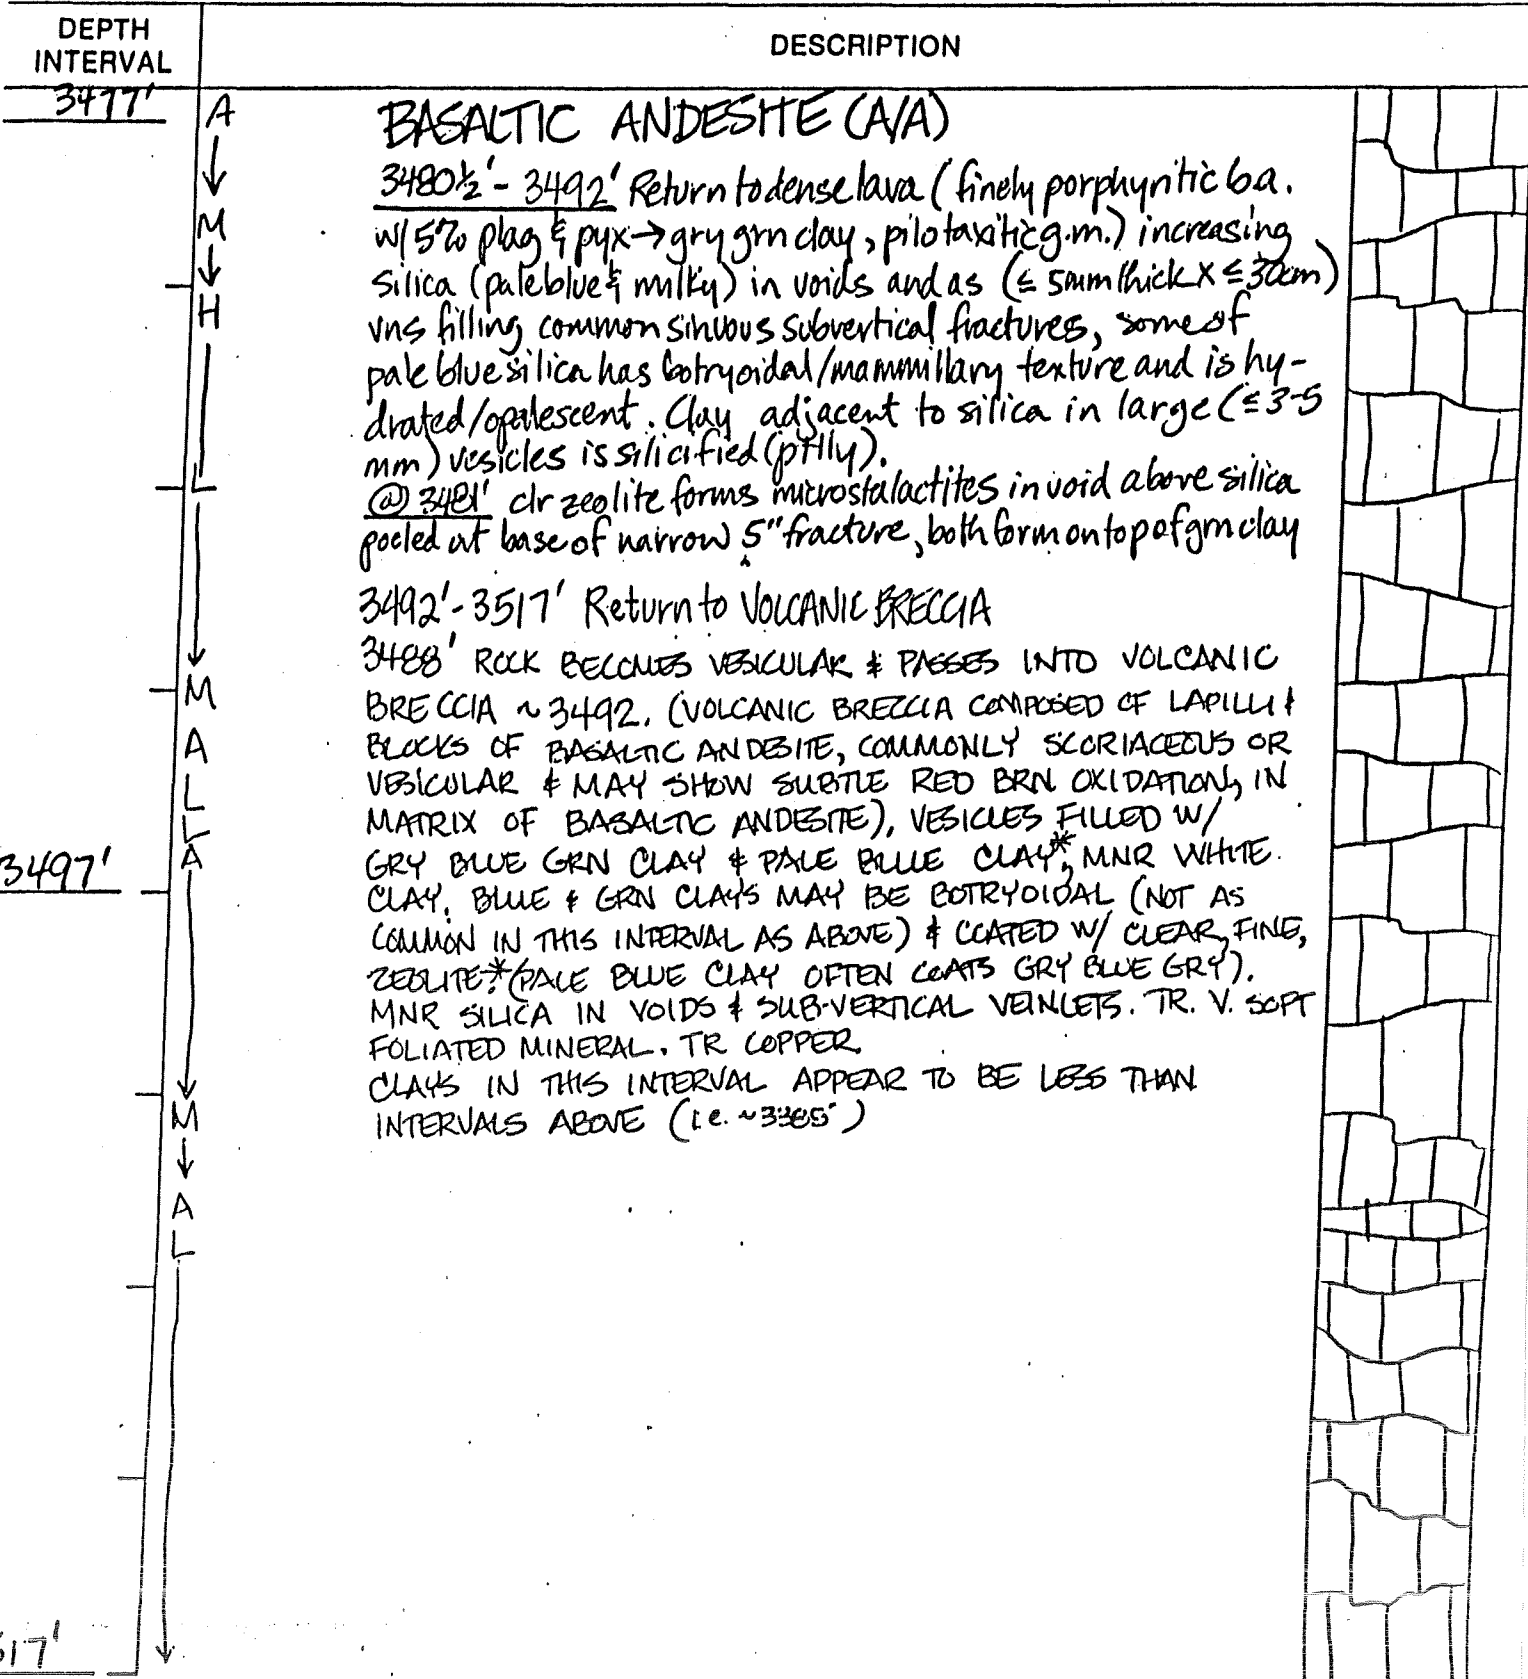 DEPTH INTERVAL
DESCRIPTION
3477'
A
M
H
L
M
A
L
L
A
3497'
M
A
L
517'
BASALTIC ANDESITE (A/A)
3480½'- 3492' Return to dense lava (finely porphyritic b.a.
w/ 5% plag & pyx→gry grn clay, pilotaxitic g.m.) increasing
silica (pale blue & milky) in voids and as (≤ 5mm thick x ≤ 30cm)
vns filling common sinuous subvertical fractures, some of
pale blue silica has botryoidal/mammillary texture and is hy-
drated/opalescent. Clay adjacent to silica in large (≤ 3-5
mm) vesicles is silicified (ptlly).
@ 3481' clr zeolite forms microstalactites in void above silica
pooled at base of narrow 5" fracture, both form on top of grn clay
3492'-3517' Return to VOLCANIC BRECCIA
3488' ROCK BECOMES VESICULAR & PASSES INTO VOLCANIC
BRECCIA ~3492. (VOLCANIC BRECCIA COMPOSED OF LAPILLI &
BLOCKS OF BASALTIC ANDESITE, COMMONLY SCORIACEOUS OR
VESICULAR & MAY SHOW SUBTLE RED BRN OXIDATION, IN
MATRIX OF BASALTIC ANDESITE), VESICLES FILLED W/
GRY BLUE GRN CLAY & PALE BLUE CLAY*, MNR WHITE
CLAY. BLUE & GRN CLAYS MAY BE BOTRYOIDAL (NOT AS
COMMON IN THIS INTERVAL AS ABOVE) & COATED W/ CLEAR, FINE,
ZEOLITE. *(PALE BLUE CLAY OFTEN COATS GRY BLUE GRY).
MNR SILICA IN VOIDS & SUB-VERTICAL VEINLETS. TR. V. SOFT
FOLIATED MINERAL. TR COPPER.
CLAYS IN THIS INTERVAL APPEAR TO BE LESS THAN
INTERVALS ABOVE (i.e. ~3385')